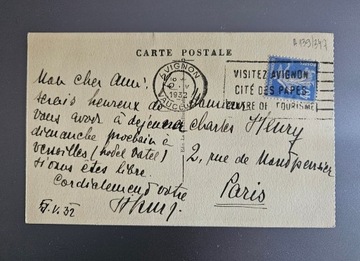 A139/747
CARTE POSTALE
AVIGNON
1932
VAUCLUSE
VISITEZ AVIGNON
CITÉ DES PAPES
CENTRE DE TOURISME
Mon cher Ami,
serais heureux de
vous avoir à déjeuner
dimanche prochain à
Versailles (hotel Vatel)
si vous êtes libre.
Cordialement votre
Henry
V. 32
Monsieur
Charles Henry
2, rue de Montpensier
Paris